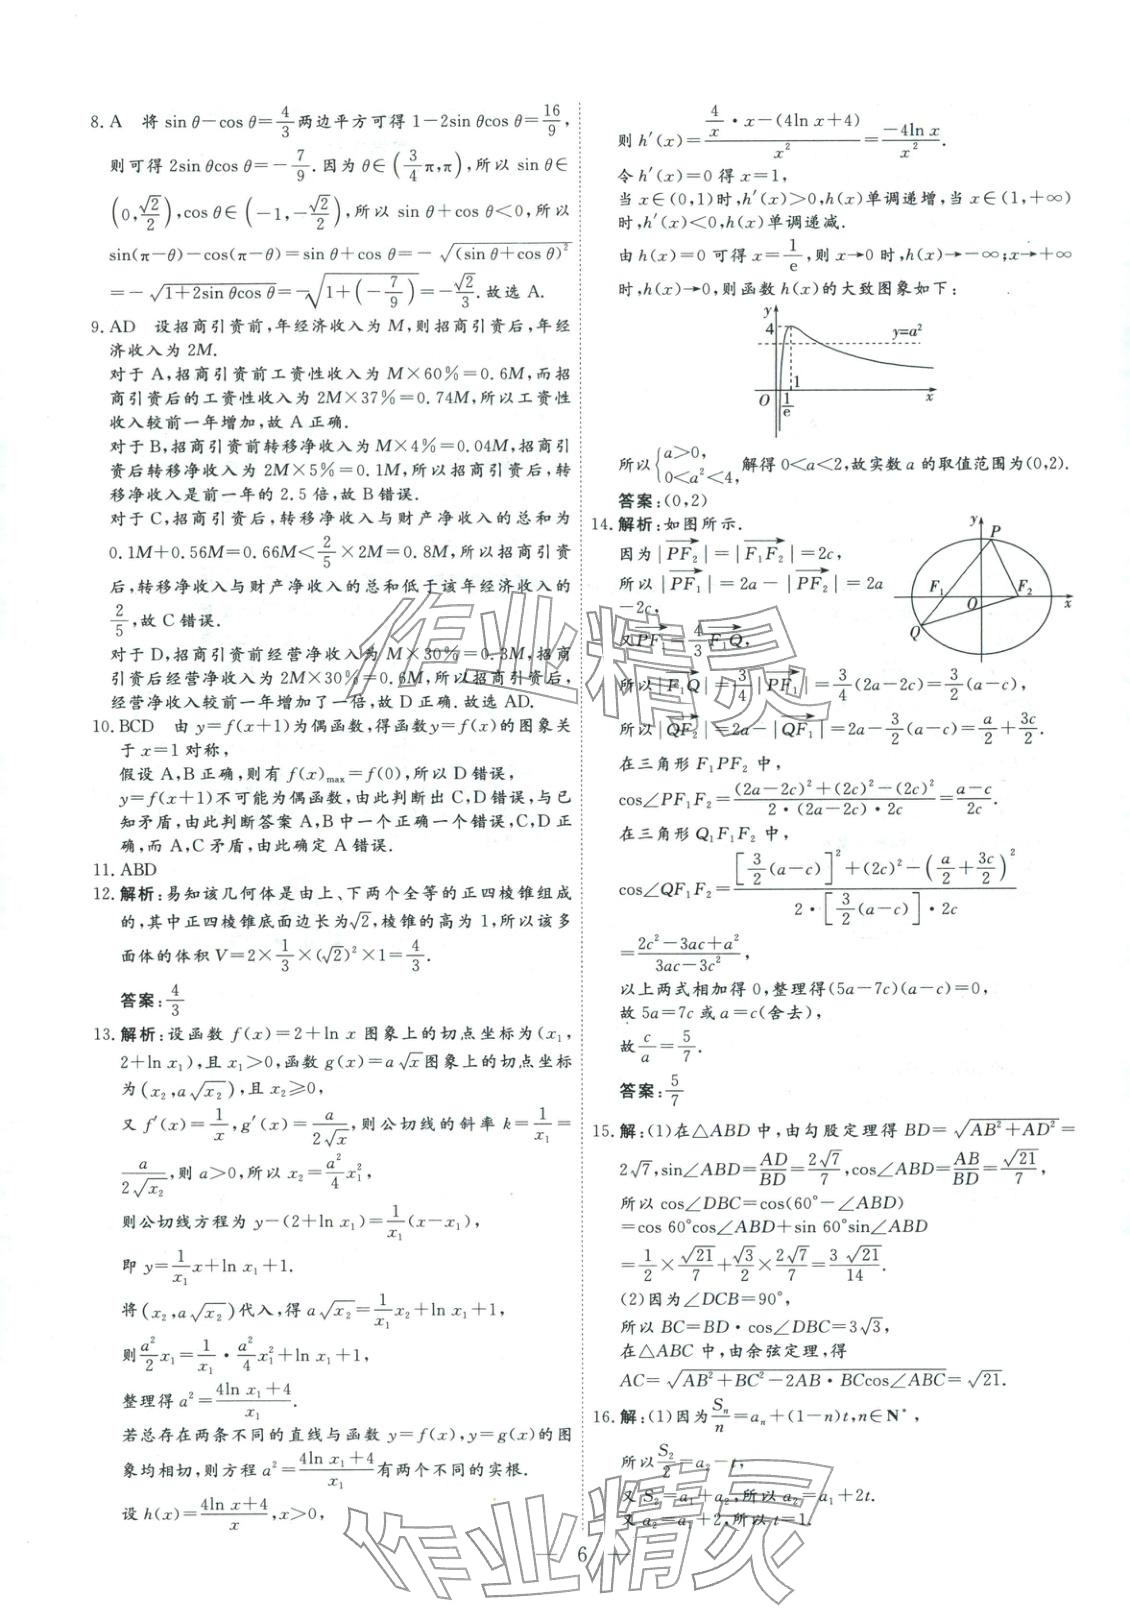 8. A　将 sin θ－cos θ＝4/3 两边平方可得 1－2sin θcos θ＝16/9，
则可得 2sin θcos θ＝－7/9．因为 θ∈(3/4π,π)，所以 sin θ∈
(0,√2/2)，cos θ∈(－1,－√2/2)，所以 sin θ＋cos θ＜0，所以
sin(π－θ)－cos(π－θ)＝sin θ＋cos θ＝－√(sin θ＋cos θ)²
＝－√(1＋2sin θcos θ)＝－√(1＋(－7/9))＝－√2/3．故选 A．
9. AD　设招商引资前，年经济收入为 M，则招商引资后，年经
济收入为 2M．
对于 A，招商引资前工资性收入为 M×60%＝0.6M，而招
商引资后的工资性收入为 2M×37%＝0.74M，所以工资性
收入较前一年增加，故 A 正确．
对于 B，招商引资前转移净收入为 M×4%＝0.04M，招商引
资后转移净收入为 2M×5%＝0.1M，所以招商引资后，转
移净收入是前一年的 2.5 倍，故 B 错误．
对于 C，招商引资后，转移净收入与财产净收入的总和为
0.1M＋0.56M＝0.66M＜2/5×2M＝0.8M，所以招商引资
后，转移净收入与财产净收入的总和低于该年经济收入的
2/5，故 C 错误．
对于 D，招商引资前经营净收入为 M×30%＝0.3M，招商
引资后经营净收入为 2M×30%＝0.6M，所以招商引资后，
经营净收入较前一年增加了一倍，故 D 正确．故选 AD．
10. BCD　由 y＝f(x＋1)为偶函数，得函数 y＝f(x)的图象关
于 x＝1 对称，
假设 A，B 正确，则有 f(x)max＝f(0)，所以 D 错误，
y＝f(x＋1)不可能为偶函数，由此判断出 C，D 错误，与已
知矛盾，由此判断答案 A，B 中一个正确一个错误，C，D 正
确，而 A，C 矛盾，由此确定 A 错误．
11. ABD
12. 解析：易知该几何体是由上、下两个全等的正四棱锥组成
的，其中正四棱锥底面边长为√2，棱锥的高为 1，所以该多
面体的体积 V＝2×1/3×(√2)²×1＝4/3．
答案：4/3
13. 解析：设函数 f(x)＝2＋ln x 图象上的切点坐标为(x₁，
2＋ln x₁)，且 x₁＞0，函数 g(x)＝a√x 图象上的切点坐标
为(x₂,a√x₂)，且 x₂≥0，
又 f′(x)＝1/x，g′(x)＝a/(2√x)，则公切线的斜率 k＝1/x₁＝
a/(2√x₂)，则 a＞0，所以 x₂＝a²/4 x₁²，
则公切线方程为 y－(2＋ln x₁)＝1/x₁(x－x₁)，
即 y＝1/x₁ x＋ln x₁＋1．
将(x₂,a√x₂)代入，得 a√x₂＝1/x₁ x₂＋ln x₁＋1，
则 a²/2 x₁＝1/x₁·a²/4 x₁²＋ln x₁＋1，
整理得 a²＝(4ln x₁＋4)/x₁．
若总存在两条不同的直线与函数 y＝f(x)，y＝g(x)的图
象均相切，则方程 a²＝(4ln x₁＋4)/x₁ 有两个不同的实根．
设 h(x)＝(4ln x＋4)/x，x＞0，
则 h′(x)＝(4/x·x－(4ln x＋4))/x²＝－4ln x/x²．
令 h′(x)＝0 得 x＝1，
当 x∈(0,1)时，h′(x)＞0，h(x)单调递增，当 x∈(1,＋∞)
时，h′(x)＜0，h(x)单调递减．
由 h(x)＝0 可得 x＝1/e，则 x→0 时，h(x)→－∞；x→＋∞
时，h(x)→0，则函数 h(x)的大致图象如下：
y
4
y＝a²
1
O
1/e
x
所以{a＞0，0＜a²＜4，解得 0＜a＜2，故实数 a 的取值范围为(0,2)．
答案：(0,2)
14. 解析：如图所示．
y
P
F₁
F₂
O
x
Q
因为|PF₂|＝|F₁F₂|＝2c，
所以|PF₁|＝2a－|PF₂|＝2a
－2c．
又 PF₁＝4/3 F₁Q，
所以|F₁Q|＝3/4|PF₁|＝3/4(2a－2c)＝3/2(a－c)，
所以|QF₂|＝2a－|QF₁|＝2a－3/2(a－c)＝a/2＋3c/2．
在三角形 F₁PF₂ 中，
cos∠PF₁F₂＝((2a－2c)²＋(2c)²－(2c)²)/(2·(2a－2c)·2c)＝(a－c)/2c．
在三角形 Q₁F₁F₂ 中，
cos∠QF₁F₂＝([3/2(a－c)]²＋(2c)²－(a/2＋3c/2)²)/(2·[3/2(a－c)]·2c)
＝(2c²－3ac＋a²)/(3ac－3c²)，
以上两式相加得 0，整理得(5a－7c)(a－c)＝0，
故 5a＝7c 或 a＝c(舍去)，
故 c/a＝5/7．
答案：5/7
15. 解：(1)在△ABD 中，由勾股定理得 BD＝√(AB²＋AD²)＝
2√7，sin∠ABD＝AD/BD＝2√7/7，cos∠ABD＝AB/BD＝√21/7，
所以 cos∠DBC＝cos(60°－∠ABD)
＝cos 60°cos∠ABD＋sin 60°sin∠ABD
＝1/2×√21/7＋√3/2×2√7/7＝3√21/14．
(2)因为∠DCB＝90°，
所以 BC＝BD·cos∠DBC＝3√3，
在△ABC 中，由余弦定理，得
AC＝√(AB²＋BC²－2AB·BCcos∠ABC)＝√21．
16. 解：(1)因为 Sₙ/n＝aₙ＋(1－n)t，n∈N*，
所以 S₂/2＝a₂－t，
又 S₂＝a₁＋a₂，所以 a₂＝a₁＋2t．
又 a₂＝a₁＋2，所以 t＝1．
— 6 —
作业精灵
作业精灵